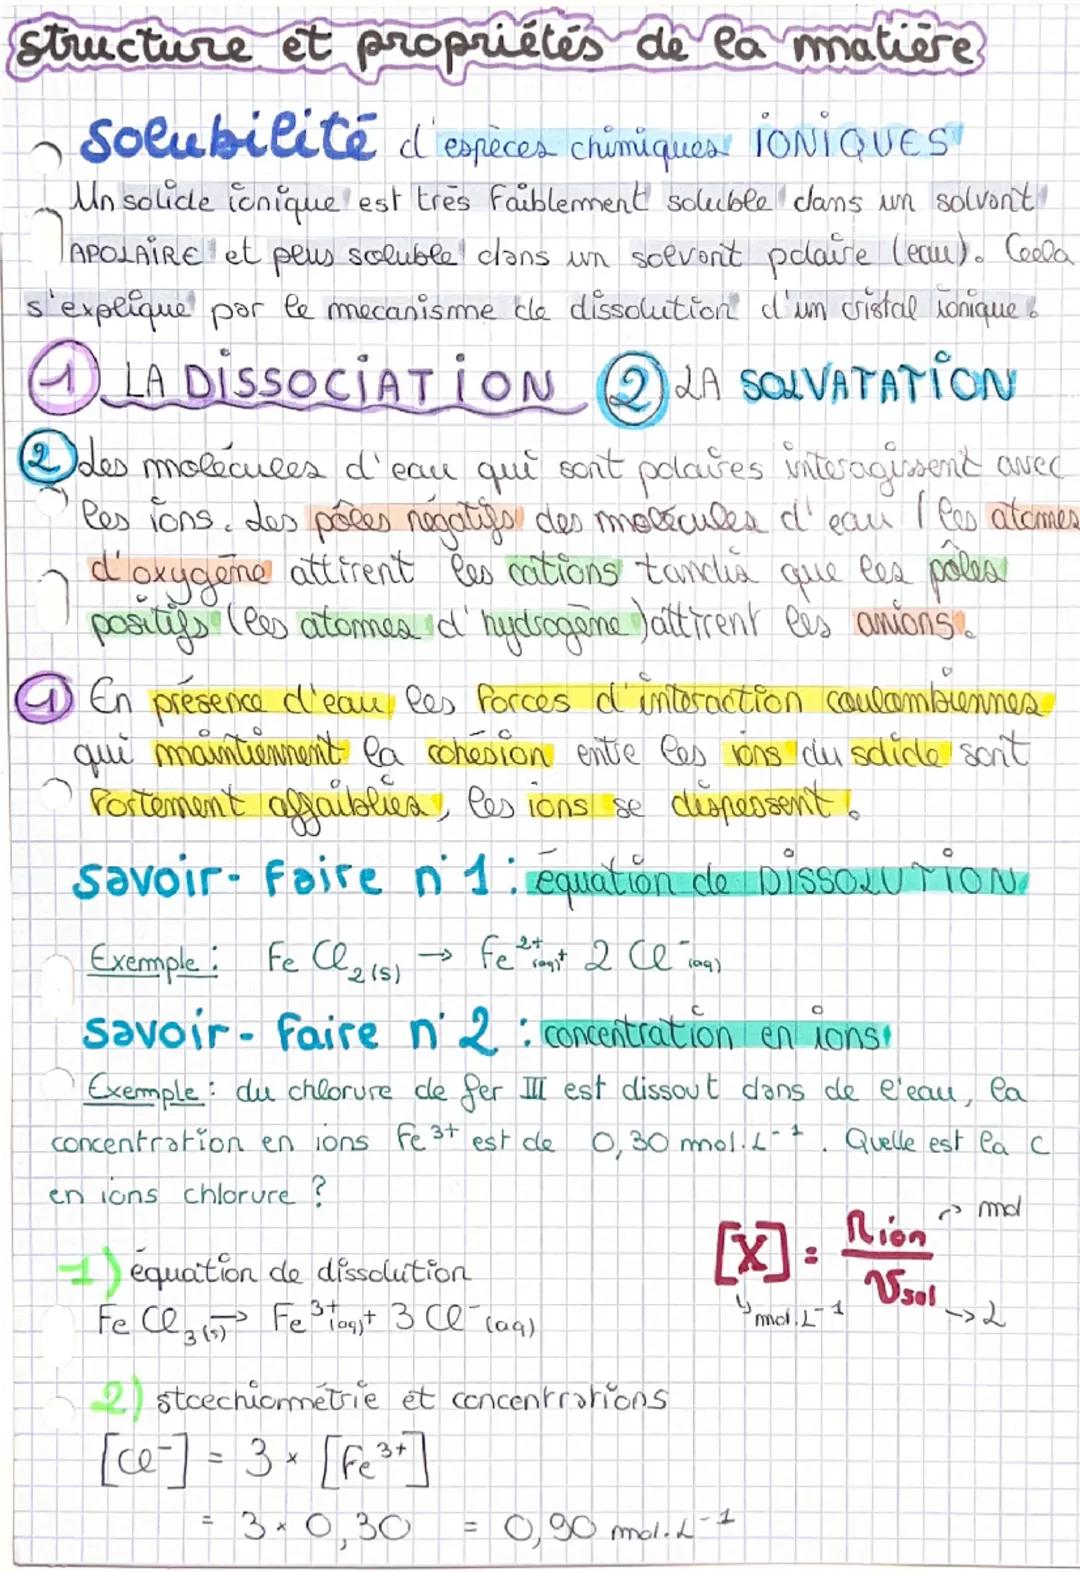 structure et propriétés de la matière
Solubilité d'espèces chimiques IONIQUES
Un solide ionique est très faiblement soluble dans un solvant
APOLAIRE et plus soluble dans un solvant polaire (eau). Ceela
s'explique par le mecanisme de dissolution d'un cristal ionique :
1 LA DISSOCIATION 2 LA SOLVATATION
2 des molécules d'eau qui sont polaires interagissent avec
les ions. Les pôles négatifs des molécules d'eau (les atomes
d'oxygène attirent les cations tandis que les pôles
positifs (les atomes d'hydrogène) attirent les anions.
1 En présence d'eau les forces d'interaction coulombiennes
qui maintiennent la cohésion entre les ions du solide sont
fortement affaiblies, les ions se dispersent.
savoir-faire n°1 : équation de DISSOLUTION
Exemple : FeCl2(s) → Fe2+(aq)+ 2 Cl-(aq)
savoir-faire n°2 : concentration en ions
Exemple : du chlorure de fer III est dissout dans de l'eau, la
concentration en ions Fe3+ est de 0,30 mol.L-1. Quelle est la C
en ions chlorure ?
[X] = nion/Vsol → mol
mol.L-1 → L
1) équation de dissolution
FeCl3(s) → Fe3+(aq)+ 3 Cl-(aq)
2) stoechiométrie et concentrations
[Cl-] = 3 × [Fe3+]
= 3 × 0,30 = 0,90 mol.L-1